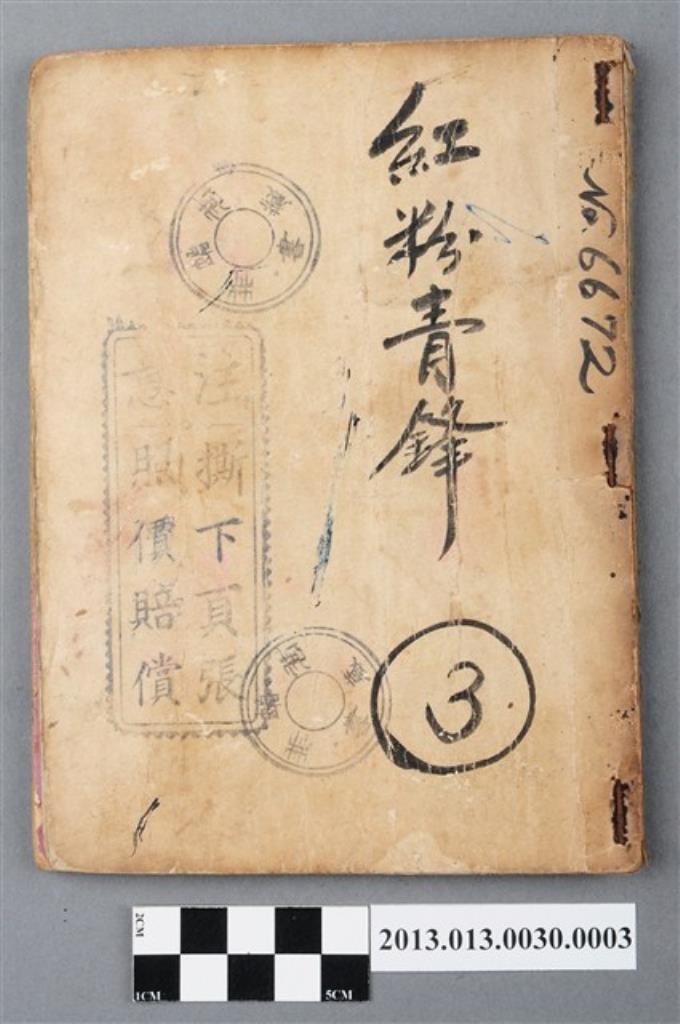 No. 6672
紅粉青鋒
3
注意
撕下頁張
照價賠償
2CM
1CM
5CM
2013.013.0030.0003